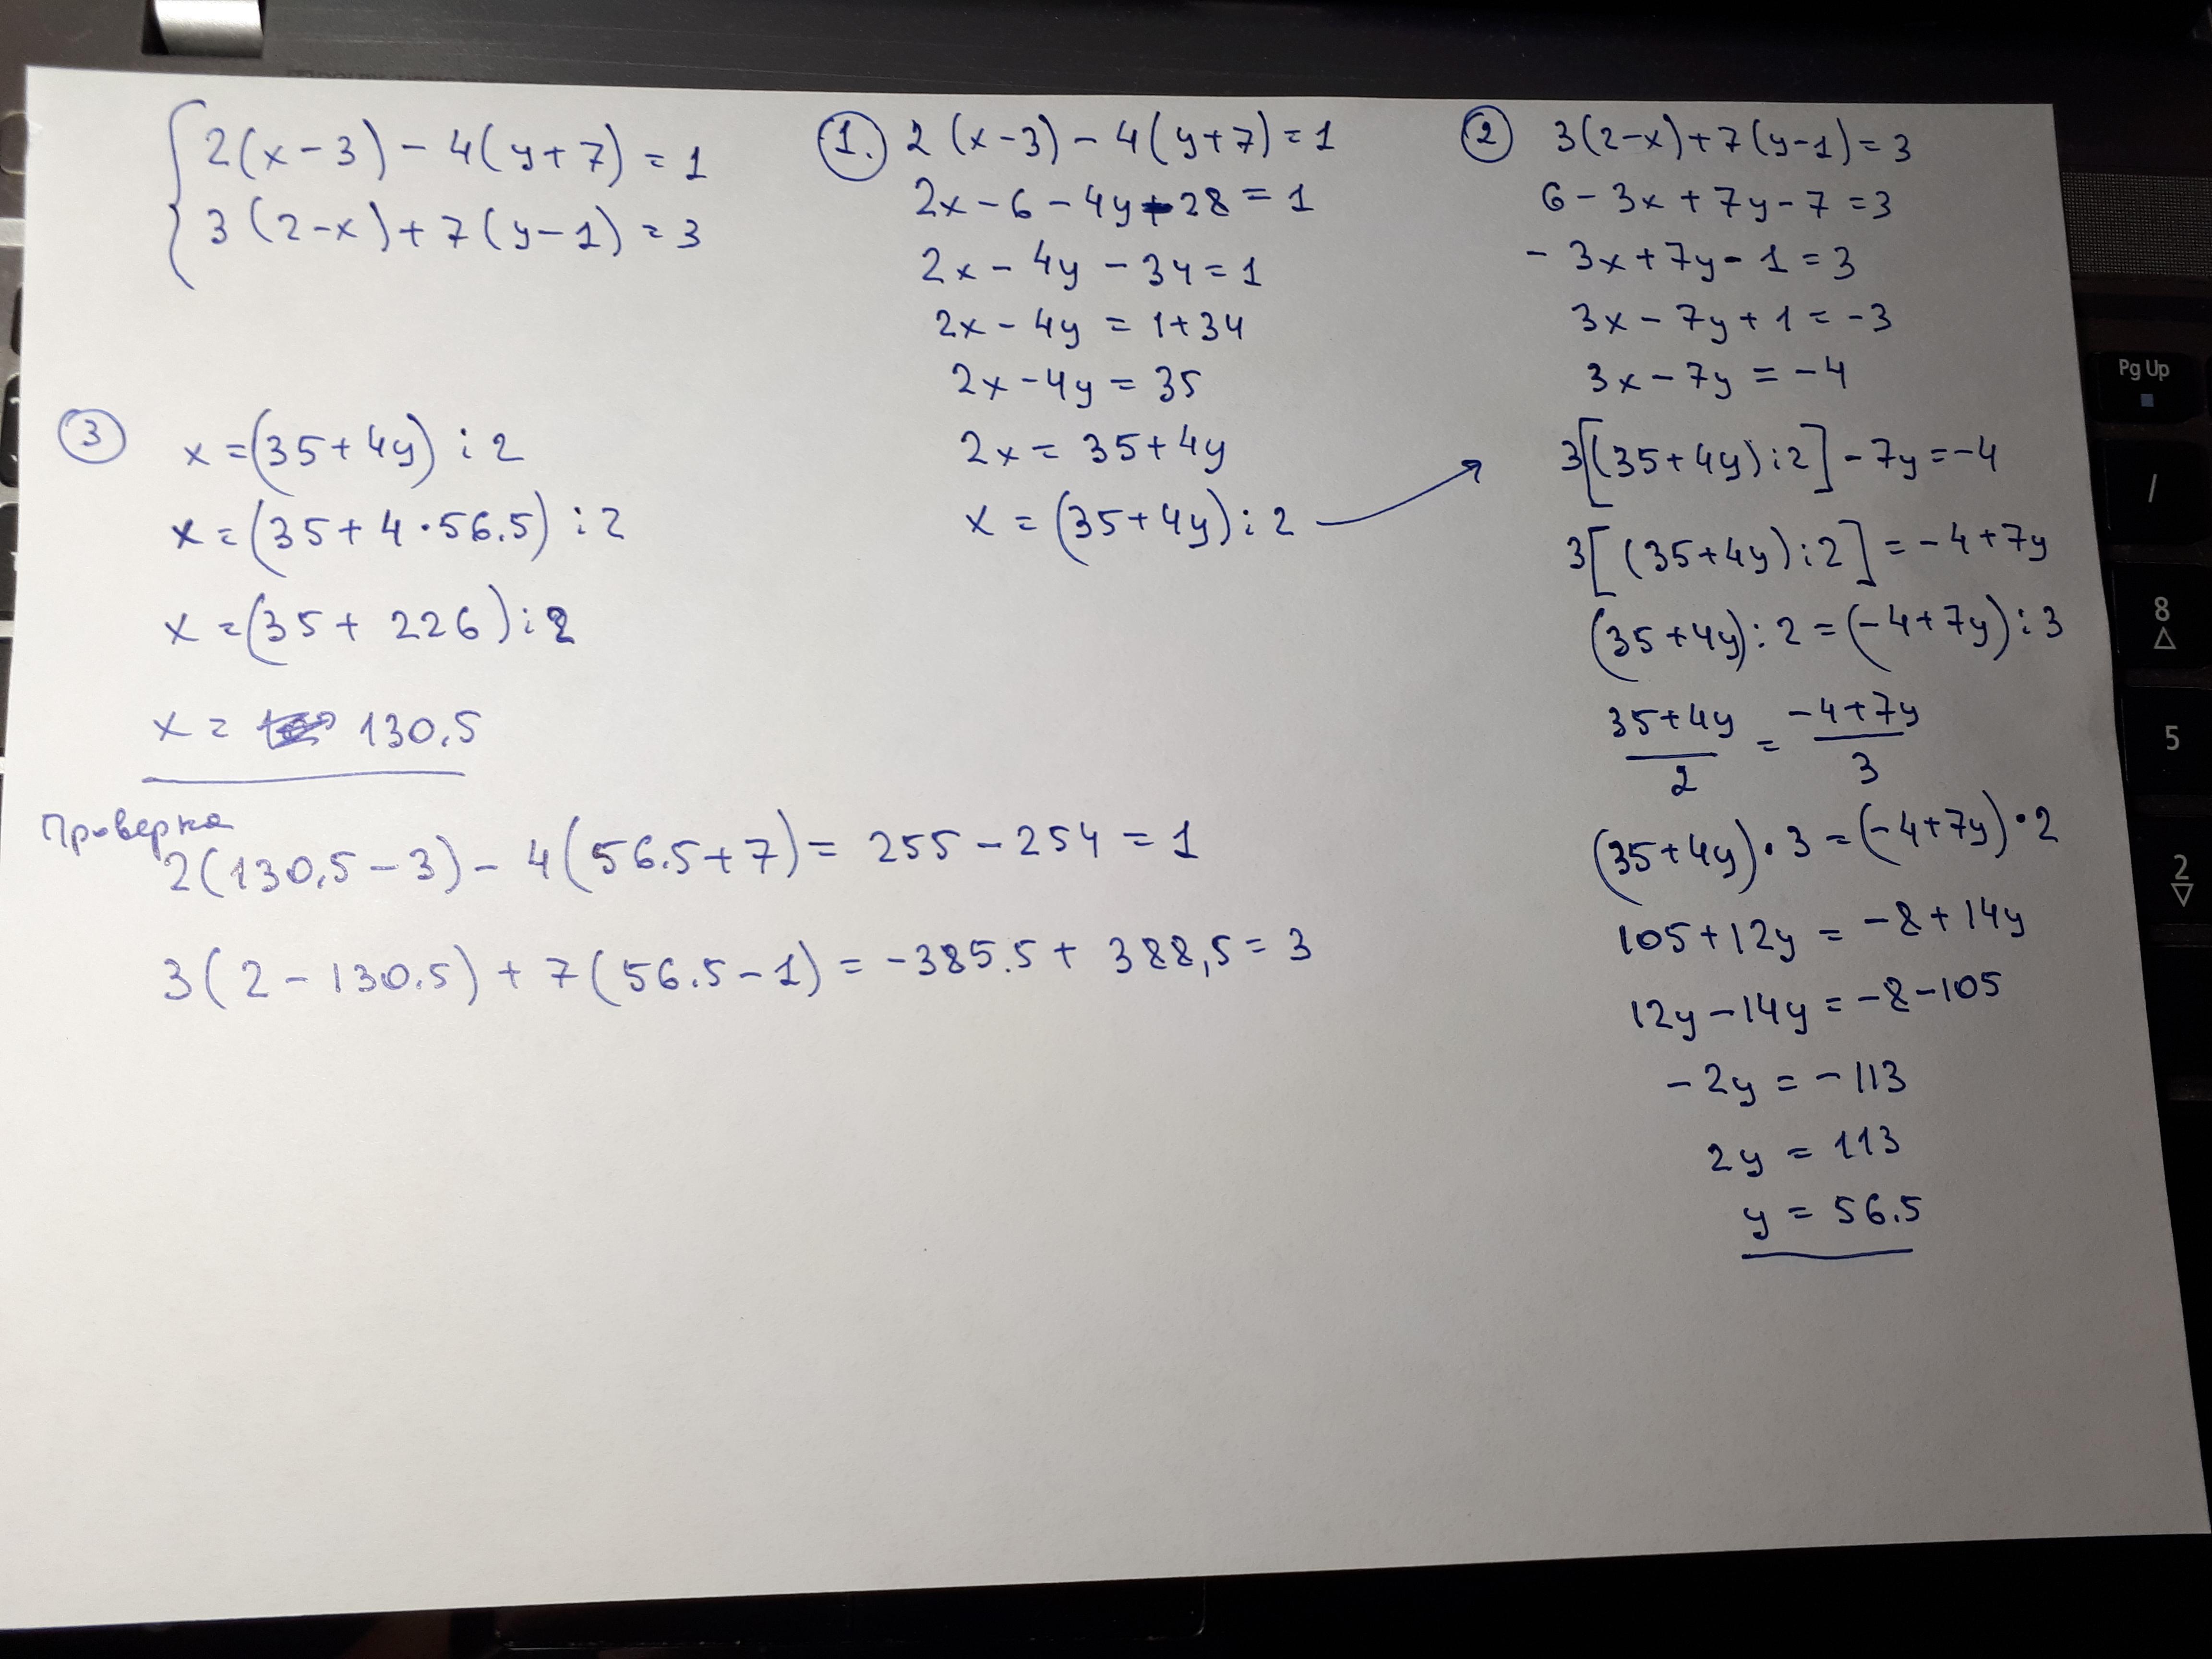 2(x-3)-4(y+7)=1
3(2-x)+7(y-1)=3
1. 2(x-3)-4(y+7)=1
2x-6-4y-28=1
2x-4y-34=1
2x-4y=1+34
2x-4y=35
2x=35+4y
x=(35+4y):2
2 3(2-x)+7(y-1)=3
6-3x+7y-7=3
-3x+7y-1=3
3x-7y+1=-3
3x-7y=-4
3[(35+4y):2]-7y=-4
3[(35+4y):2]=-4+7y
(35+4y):2=(-4+7y):3
35+4y/2=-4+7y/3
(35+4y)·3=(-4+7y)·2
105+12y=-8+14y
12y-14y=-8-105
-2y=-113
2y=113
y=56.5
3 x=(35+4y):2
x=(35+4·56.5):2
x=(35+226):2
x=130,5
Проверка
2(130,5-3)-4(56.5+7)=255-254=1
3(2-130.5)+7(56.5-1)=-385.5+388,5=3
Pg Up
/
8
5
2